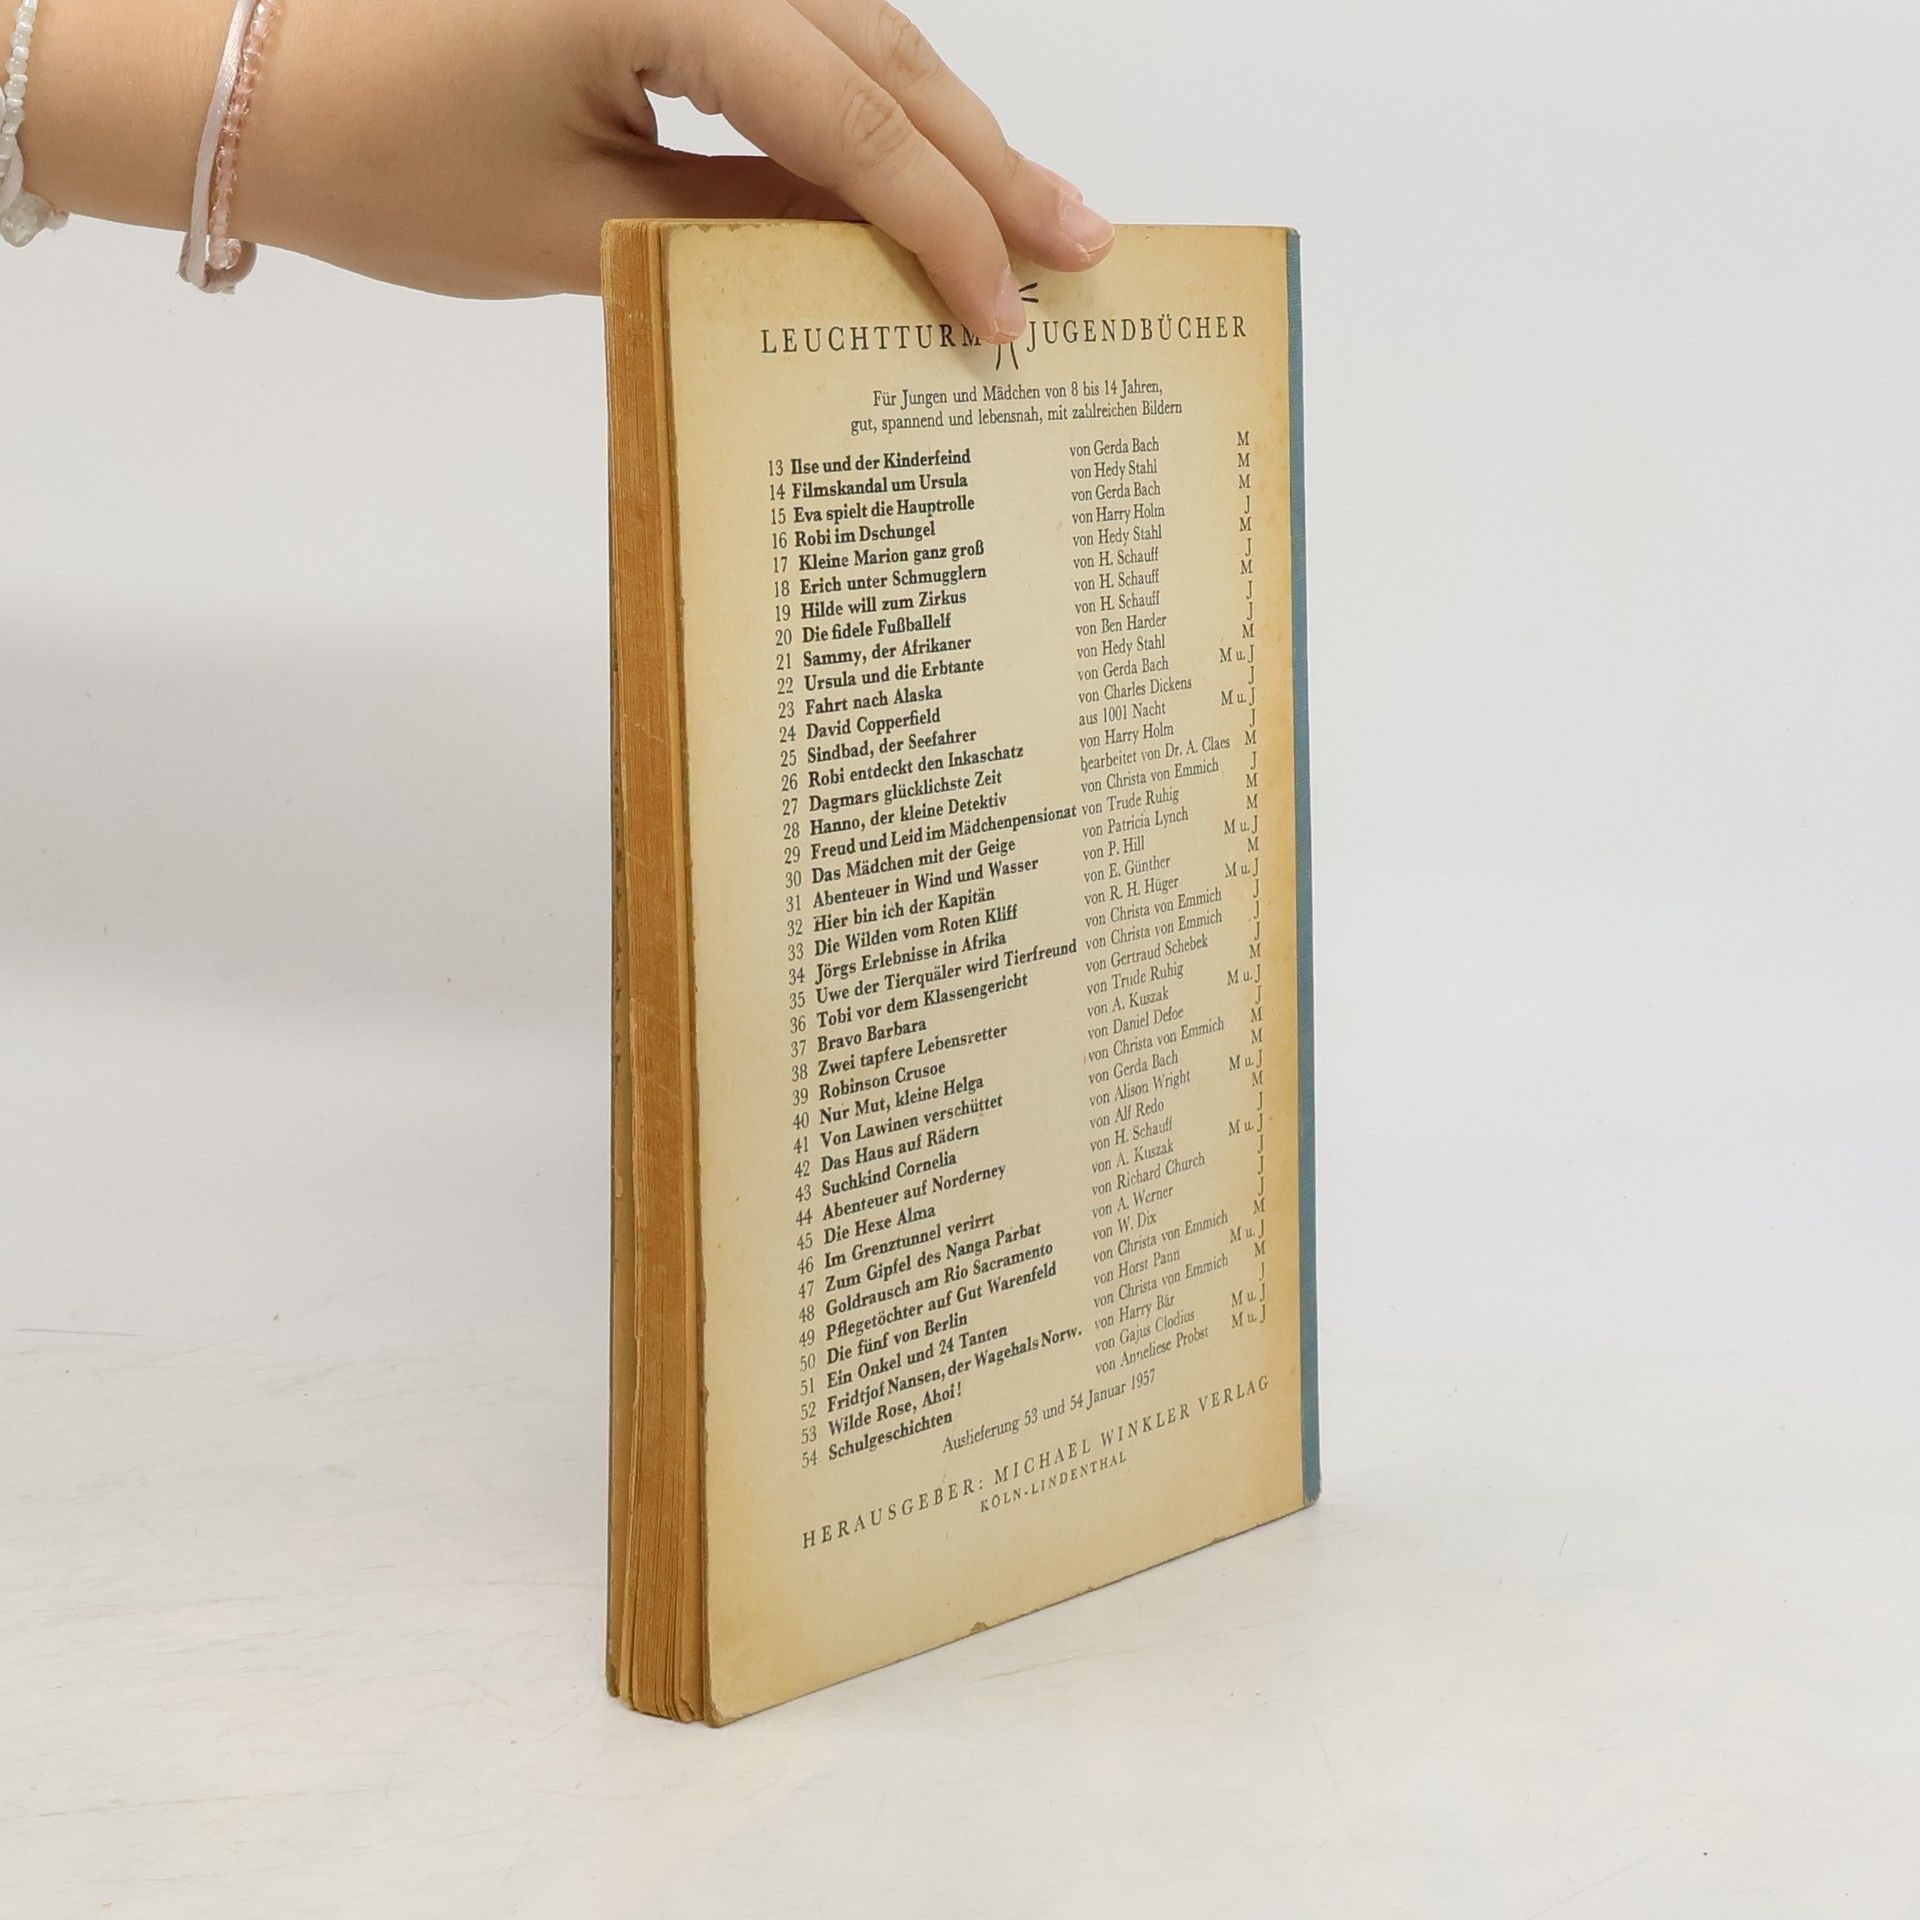 LEUCHTTURM JUGENDBÜCHER
Für Jungen und Mädchen von 8 bis 14 Jahren,
gut, spannend und lebensnah, mit zahlreichen Bildern
13 Ilse und der Kinderfeind von Gerda Bach M
14 Filmskandal um Ursula von Hedy Stahl M
15 Eva spielt die Hauptrolle von Gerda Bach M
16 Robi im Dschungel von Harry Holm J
17 Kleine Marion ganz groß von Hedy Stahl M
18 Erich unter Schmugglern von H. Schauff J
19 Hilde will zum Zirkus von H. Schauff M
20 Die fidele Fußballelf von H. Schauff J
21 Sammy, der Afrikaner von Ben Harder J
22 Ursula und die Erbtante von Hedy Stahl M
23 Fahrt nach Alaska von Gerda Bach M u. J
24 David Copperfield von Charles Dickens J
25 Sindbad, der Seefahrer aus 1001 Nacht M u. J
26 Robi entdeckt den Inkaschatz von Harry Holm J
27 Dagmars glücklichste Zeit bearbeitet von Dr. A. Claes M
28 Hanno, der kleine Detektiv von Christa von Emmich J
29 Freud und Leid im Mädchenpensionat von Trude Ruhig M
30 Das Mädchen mit der Geige von Patricia Lynch M
31 Abenteuer in Wind und Wasser von P. Hill M u. J
32 Hier bin ich der Kapitän von E. Günther M
33 Die Wilden vom Roten Kliff von R. H. Hüger M u. J
34 Jörgs Erlebnisse in Afrika von Christa von Emmich J
35 Uwe der Tierquäler wird Tierfreund von Christa von Emmich J
36 Tobi vor dem Klassengericht von Gertraud Schebek J
37 Bravo Barbara von Trude Ruhig M
38 Zwei tapfere Lebensretter von A. Kuszak M u. J
39 Robinson Crusoe von Daniel Defoe J
40 Nur Mut, kleine Helga von Christa von Emmich M
41 Von Lawinen verschüttet von Gerda Bach M
42 Das Haus auf Rädern von Alison Wright M u. J
43 Suchkind Cornelia von Alf Redo M
44 Abenteuer auf Norderney von H. Schauff J
45 Die Hexe Alma von A. Kuszak M u. J
46 Im Grenztunnel verirrt von Richard Church J
47 Zum Gipfel des Nanga Parbat von A. Werner J
48 Goldrausch am Rio Sacramento von W. Dix J
49 Pflegetöchter auf Gut Warenfeld von Christa von Emmich M
50 Die fünf von Berlin von Horst Pann M u. J
51 Ein Onkel und 24 Tanten von Christa von Emmich M
52 Fridtjof Nansen, der Wagehals Norw. von Harry Bär J
53 Wilde Rose, Ahoi! von Gajus Clodius M u. J
54 Schulgeschichten von Anneliese Probst M u. J
Auslieferung 53 und 54 Januar 1957
HERAUSGEBER: MICHAEL WINKLER VERLAG
KÖLN-LINDENTHAL